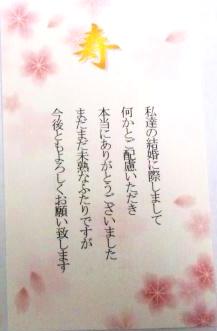 寿
私達の結婚に際しまして
何かとご配慮いただき
本当にありがとうございました
まだまだ未熟なふたりですが
今後ともよろしくお願い致します